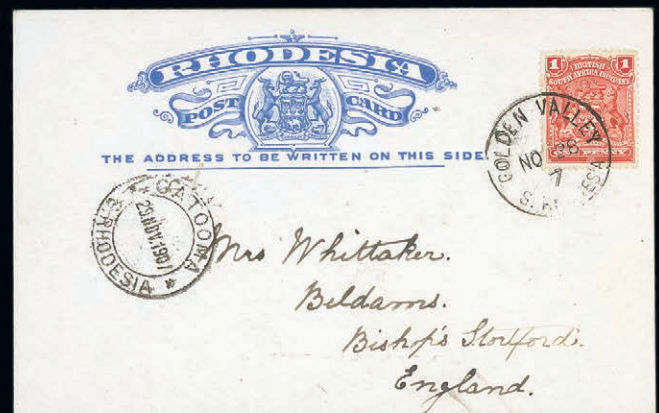 RHODESIA
POST CARD
THE ADDRESS TO BE WRITTEN ON THIS SIDE.
1 1
BRITISH
SOUTH AFRICA COMPANY
PENNY
GOLDEN VALLEY
NO 28
7
S.
GATOOMA
29 NOV 1907
RHODESIA
Mrs Whittaker.
Beldams.
Bishop's Stortford.
England.